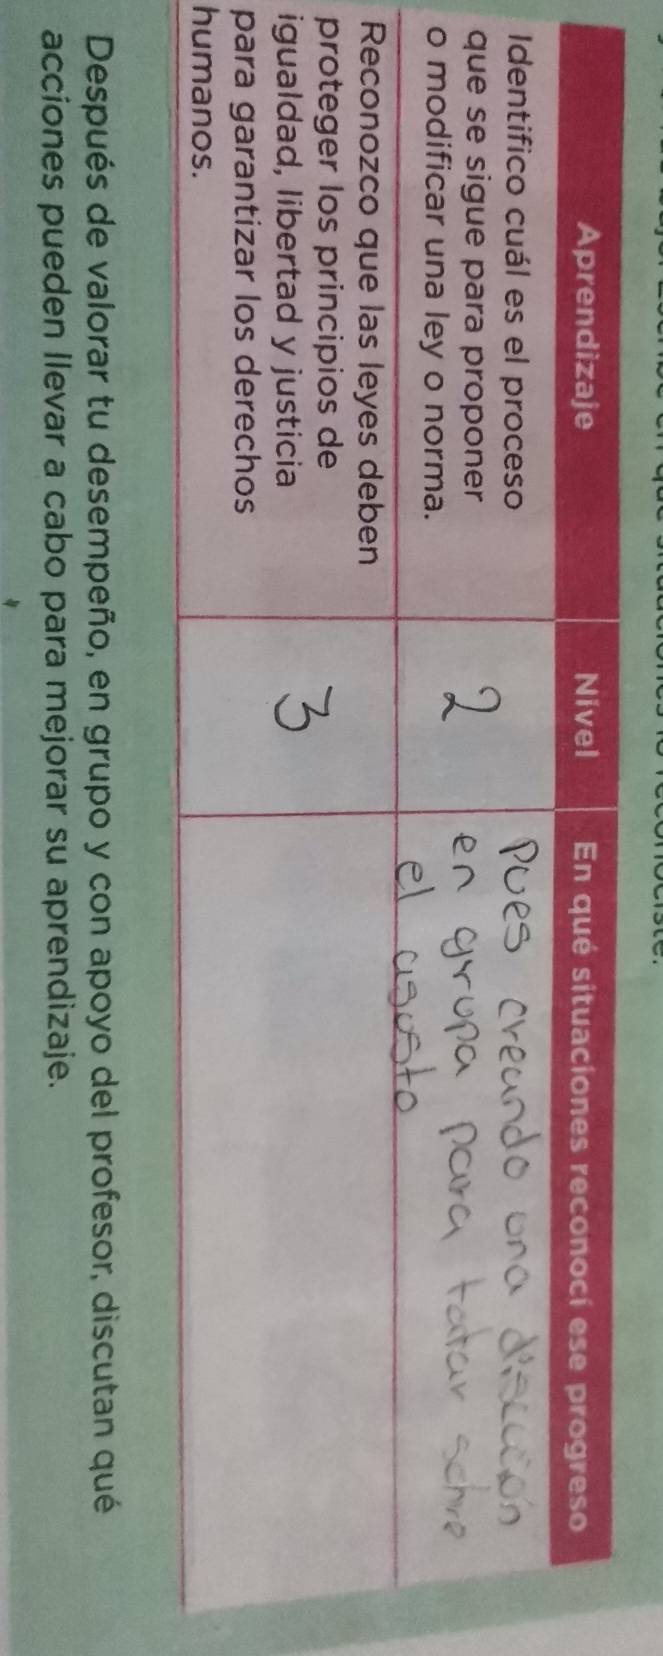 Aprendizaje
Nivel
En qué situaciones reconocí ese progreso
Identifico cuál es el proceso
que se sigue para proponer
o modificar una ley o norma.
2
Pues creando una discución
en grupa para tatar sobre
el asusto
Reconozco que las leyes deben
proteger los principios de
igualdad, libertad y justicia
para garantizar los derechos
humanos.
3
Después de valorar tu desempeño, en grupo y con apoyo del profesor, discutan qué
acciones pueden llevar a cabo para mejorar su aprendizaje.